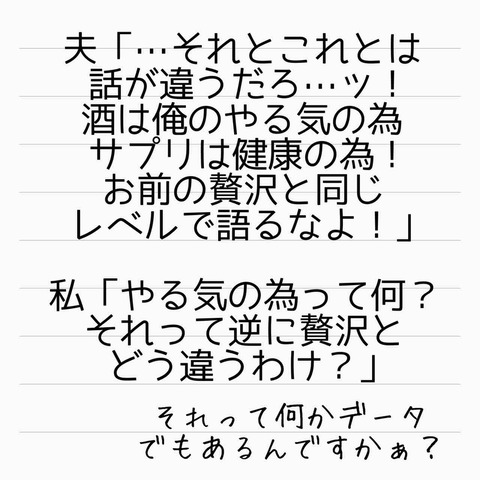 夫「…それとこれとは
話が違うだろ…ッ！
酒は俺のやる気の為
サプリは健康の為！
お前の贅沢と同じ
レベルで語るなよ！」
私「やる気の為って何？
それって逆に贅沢と
どう違うわけ？」
それって何かデータ
でもあるんですかぁ？